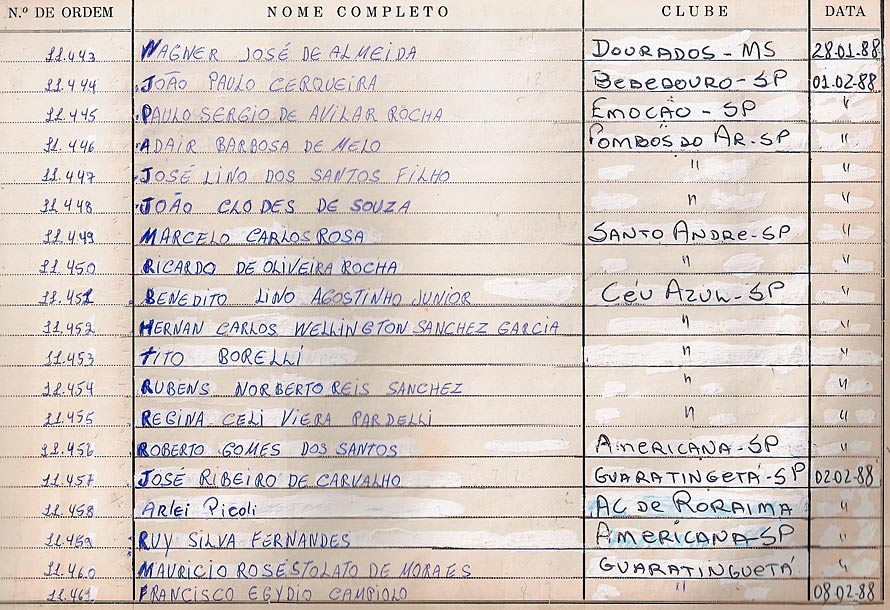 N.º DE ORDEM NOME COMPLETO CLUBE DATA
11.443 WAGNER JOSÉ DE ALMEIDA DOURADOS - MS 28.01.88
11.444 JOÃO PAULO CERQUEIRA BEBEDOURO - SP 01.02.88
11.445 PAULO SERGIO DE AVILAR ROCHA EMOCÃO - SP "
11.446 ADAIR BARBOSA DE MELO POMBOS DO AR - SP "
11.447 JOSÉ LINO DOS SANTOS FILHO " "
11.448 JOÃO CLODES DE SOUZA " "
11.449 MARCELO CARLOS ROSA SANTO ANDRE - SP "
11.450 RICARDO DE OLIVEIRA ROCHA " "
11.451 BENEDITO LINO AGOSTINHO JUNIOR CÉU AZUL - SP "
11.452 HERNAN CARLOS WELLINGTON SANCHEZ GARCIA " "
11.453 TITO BORELLI " "
11.454 RUBENS NORBERTO REIS SANCHEZ " "
11.455 REGINA CELI VIERA PARDELLI " "
11.456 ROBERTO GOMES DOS SANTOS AMERICANA - SP "
11.457 JOSÉ RIBEIRO DE CARVALHO GUARATINGETÁ - SP 02.02.88
11.458 Arlei Picoli AC DE RORAIMA "
11.459 RUY SILVA FERNANDES AMERICANA - SP "
11.460 MAURICIO ROSESTOLATO DE MORAES GUARATINGUETÁ "
11.461 FRANCISCO EGYDIO CAMPIOLO " 08.02.88